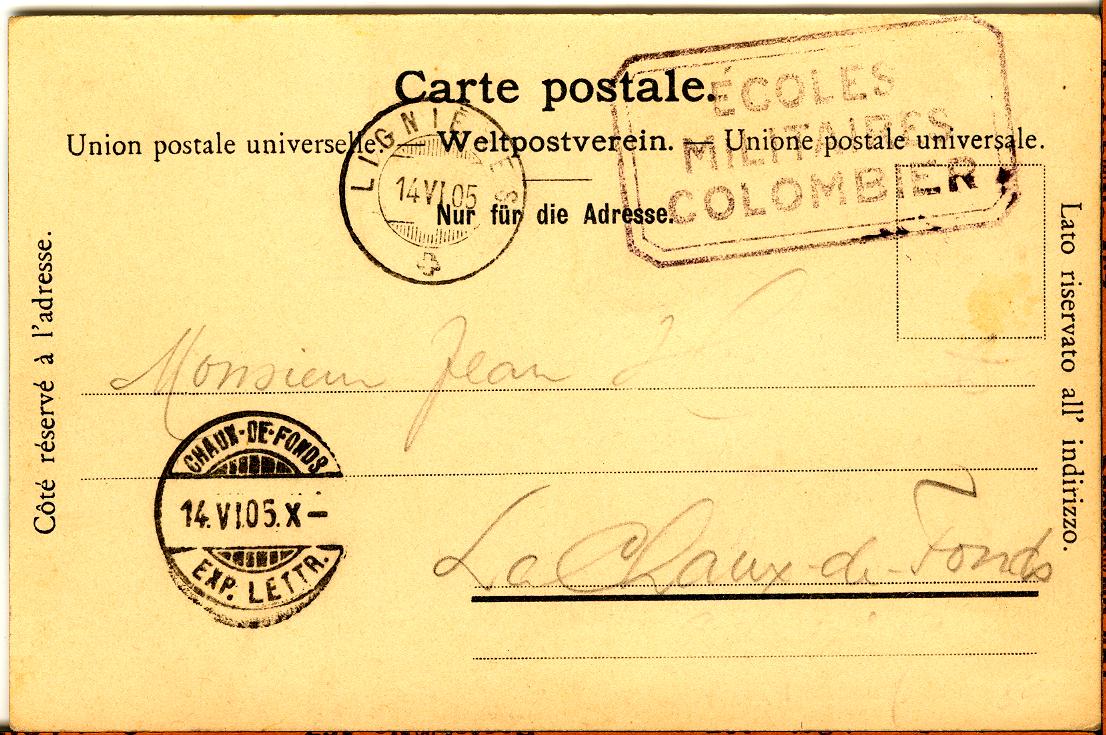 Carte postale.
Union postale universelle. — Weltpostverein. — Unione postale universale.
Nur für die Adresse.
ÉCOLES
MILITAIRES
COLOMBIER
LIGNIÈRES
14 VI.05
Côté réservé à l'adresse.
Lato riservato all' indirizzo.
Monsieur Jean
CHAUX-DE-FONDS
14.VI.05.X-
EXP. LETTR.
La Chaux-de-Fonds